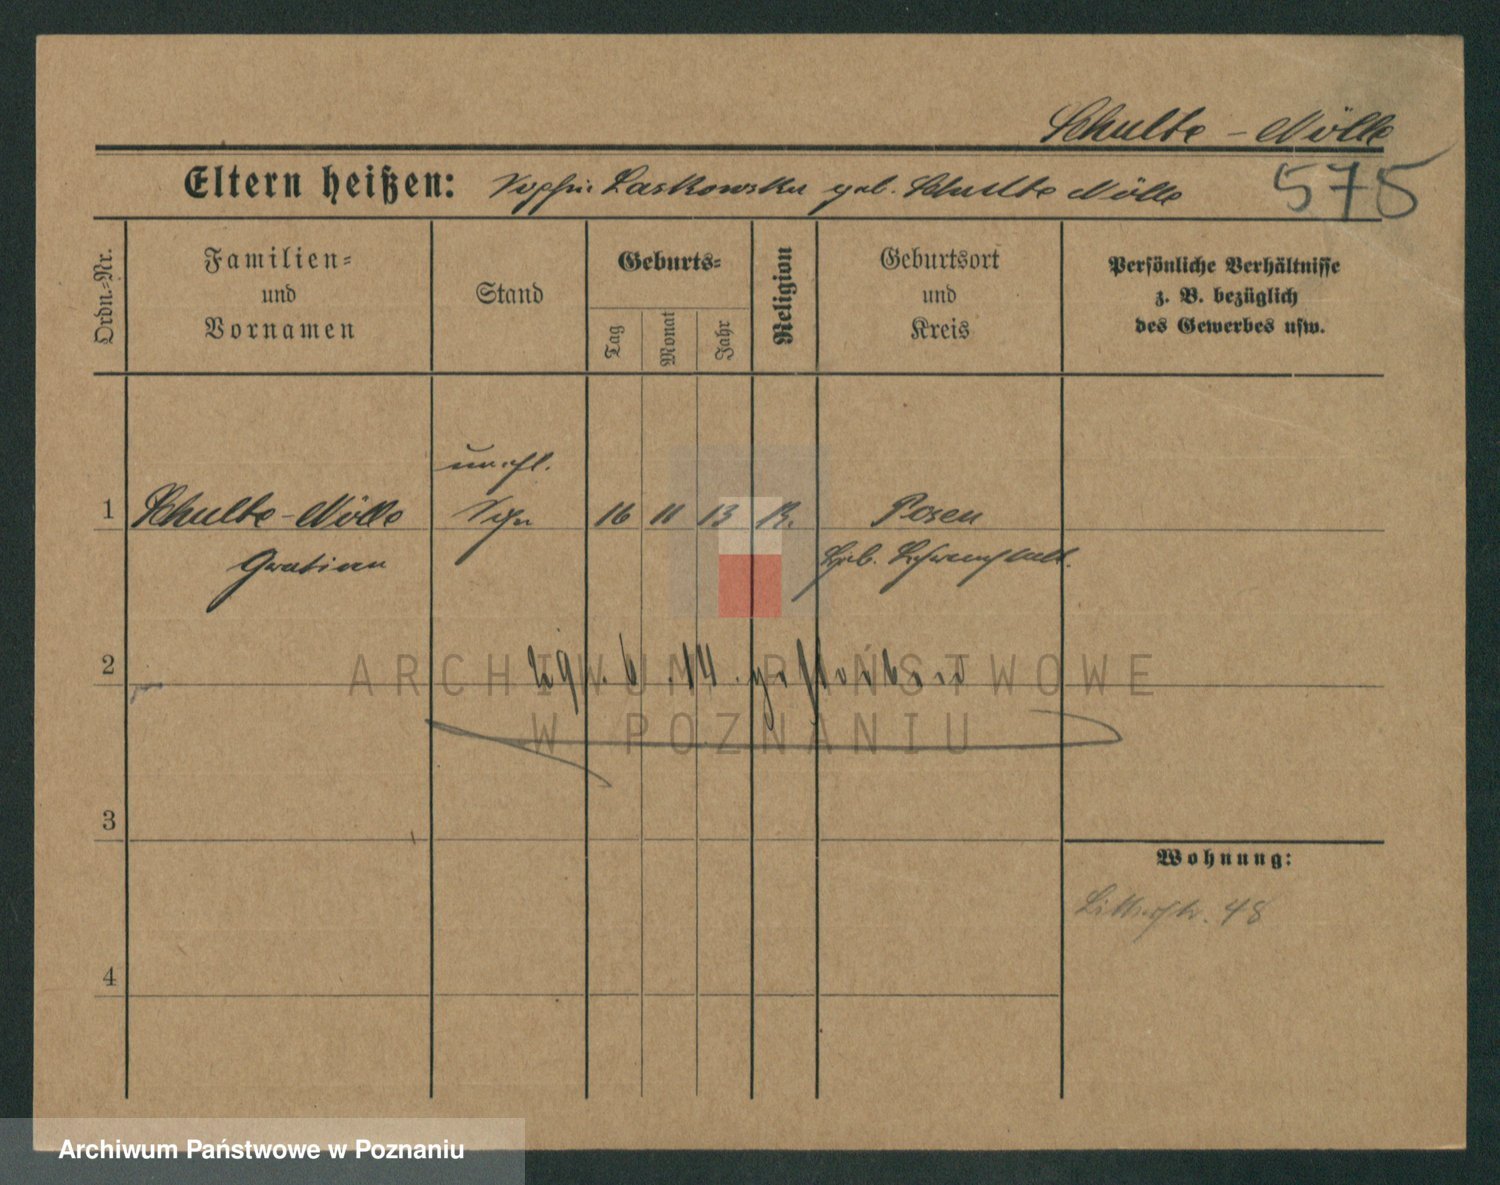 Schulte-Nölle
Eltern heißen: Sophie Laskowska geb. Schulte Nölle 575
Ordn.-Nr.
Familien-
und
Vornamen
Stand
Geburts-
Tag
Monat
Jahr
Religion
Geburtsort
und
Kreis
Persönliche Verhältnisse
z. B. bezüglich
des Gewerbes usw.
unehl.
1 Schulte-Nölle Sohn 16 11 13 Posen
Gratian Geb.
2
29. 6. 14. gestorben
3
4
Wohnung:
48
ARCHIWUM PAŃSTWOWE
W POZNANIU
Archiwum Państwowe w Poznaniu